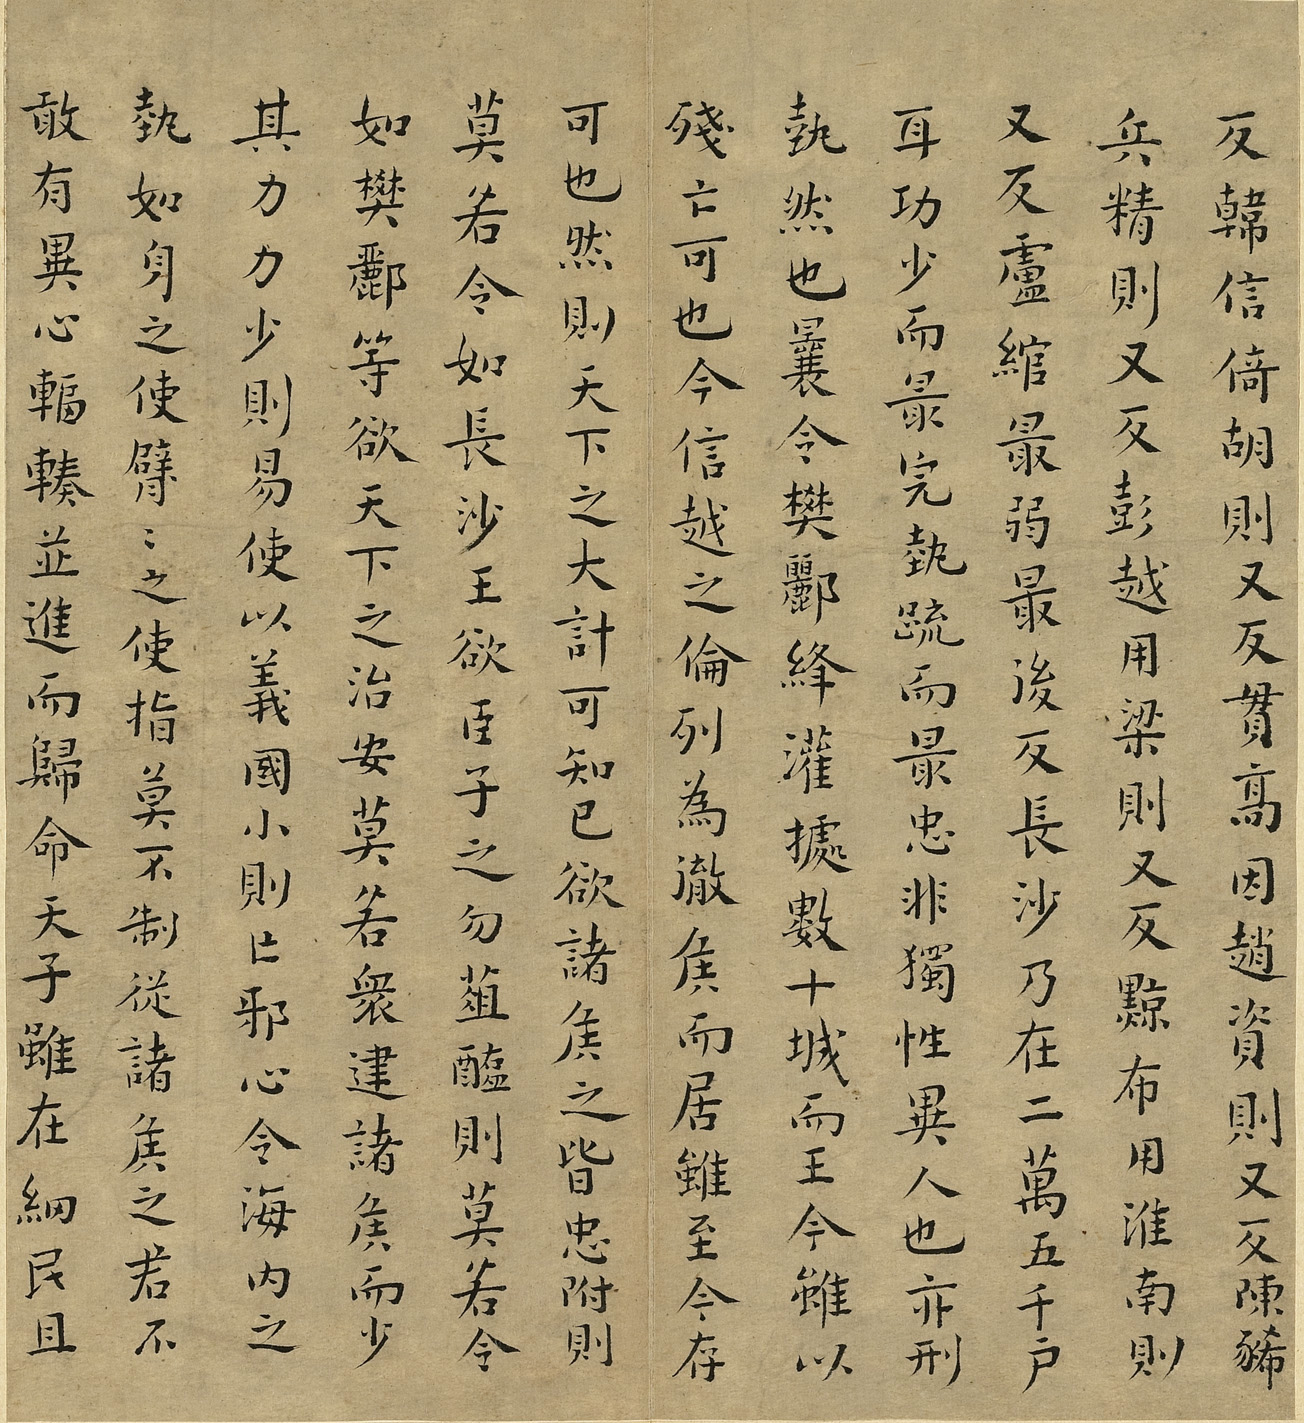 反韓信倚胡則又反貫高因趙資則又反陳豨
兵精則又反彭越用梁則又反黥布用淮南則
又反盧綰最弱最後反長沙乃在二萬五千戶
耳功少而最完埶疏而最忠非獨性異人也亦形
埶然也曩令樊酈絳灌據數十城而王今雖以
殘亡可也令信越之倫列為徹侯而居雖至今存
可也然則天下之大計可知已欲諸侯之皆忠附則
莫若令如長沙王欲臣子之勿葅醢則莫若令
如樊酈等欲天下之治安莫若眾建諸侯而少
其力力少則易使以義國小則亡邪心令海內之
埶如身之使臂〻之使指莫不制從諸侯之君不
敢有異心輻輳並進而歸命天子雖在細民且